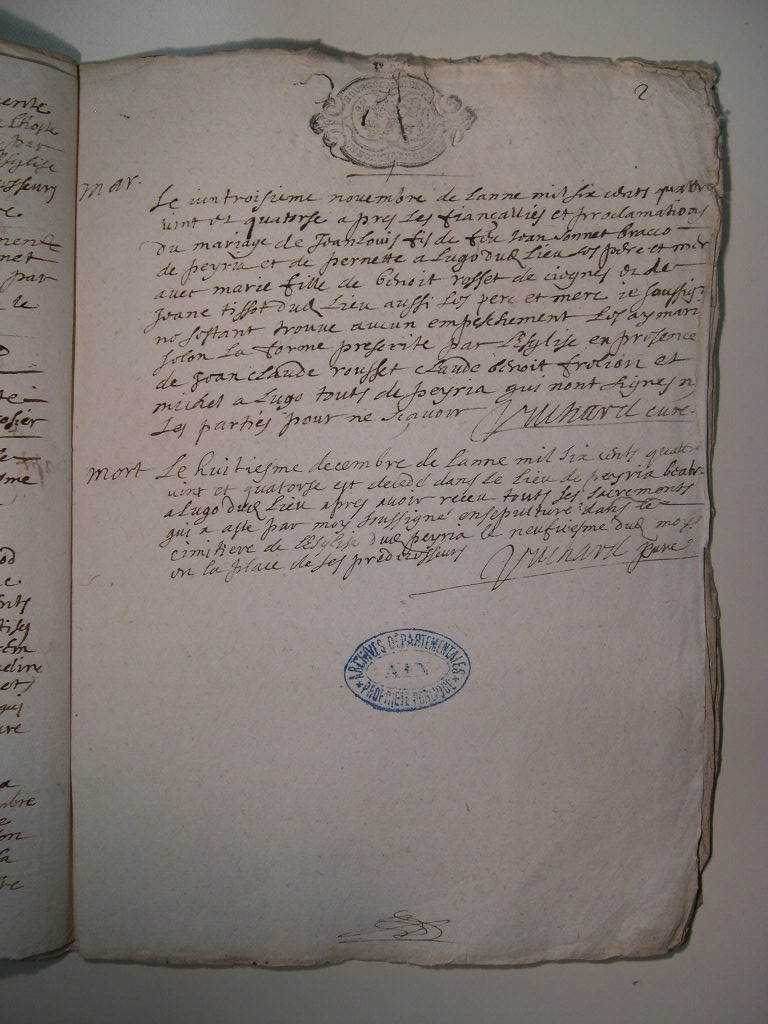 2
mar.
Le vintroisieme novembre de lanne mil six cents quattre
vint et quatorse apres les fiançallies et proclamations
du mariage de Jean Louis fis de feu Jean Sonnet
de peyria et de pernette a Lugo dud Lieu ses père et mer
avec marie fille de benoit rosset de et de
Jeane tissot dud Lieu aussi ses pere et mere ie soussig:
no sestant trouve aucun empeschement Les ay mari
selon La forme prescrite par L'esglise en presence
de Jean Claude rousset Claude benoit et
michel a Lugo touts de peyria qui nont signes n
Les parties pour ne scavoir Vuchard cure.
mort Le huitiesme decembre de Lanne mil six cents quattr
vint et quatorse est decede dans le Lieu de peyria
a Lugo dud Lieu apres avoir receu touts ses sacrements
qui a este par moy soussigné ensepulturé dans le
cimitiere de L'esglise dud peyria le neufviesme dud moys
en la place de ses predecesseurs
Vuchard cure
ARCHIVES DÉPARTEMENTALES
AIN
PROPRIÉTÉ PUBLIQUE